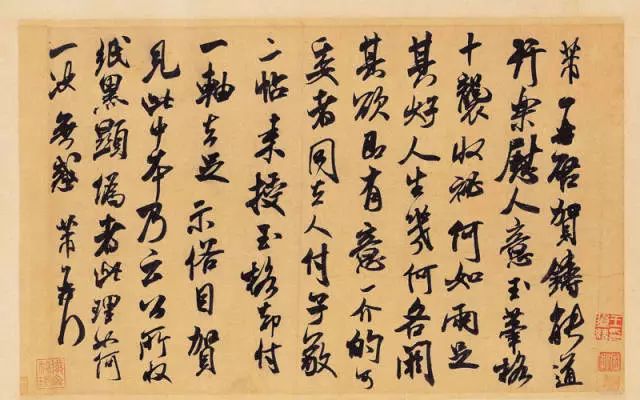 芾再啓賀鑄能道
行樂慰人意玉筆格
十襲收祕何如兩足
其好人生幾何各閼
其欲即有意一介的可
委者同去人付子敬
二帖来授玉格却付
一軸去足示俗目賀
見此中本乃云公所收
紙黑顯偽者此理如何
一決無惑 芾再行